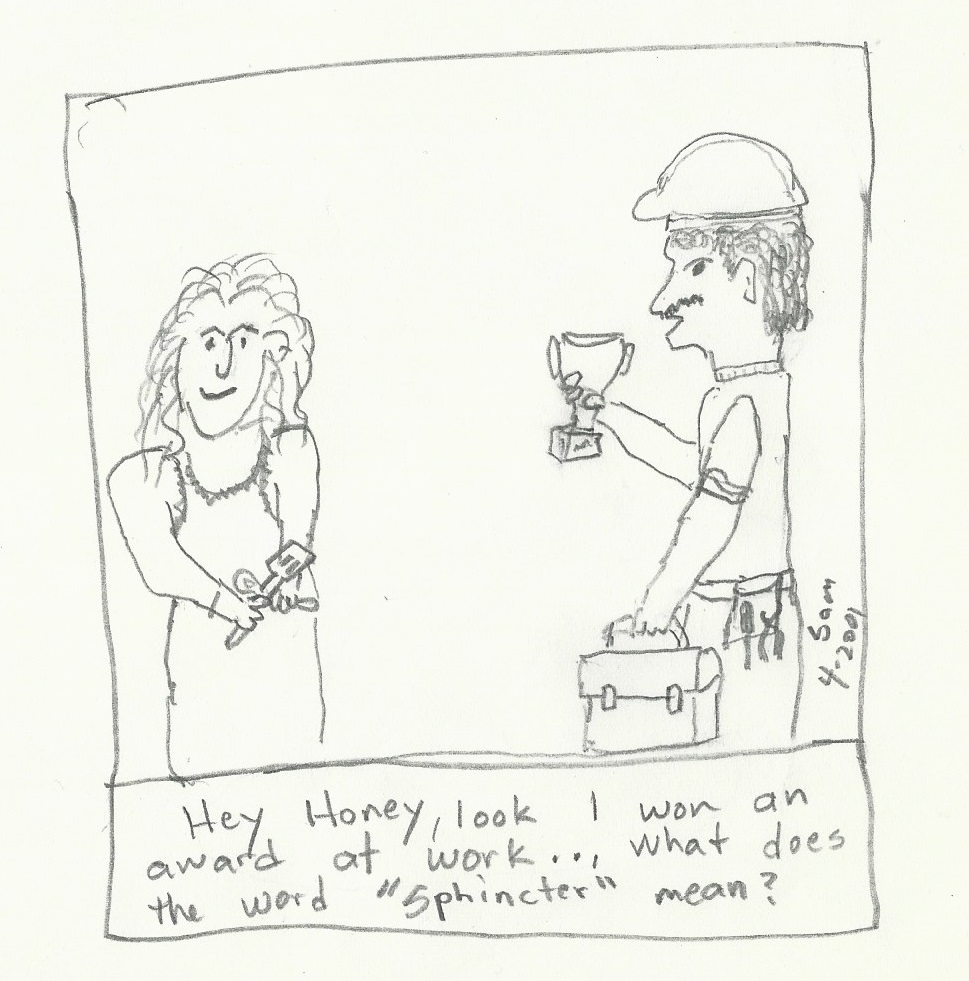 Sam
4-2001
Hey Honey, look I won an
award at work..., what does
the word "Sphincter" mean?